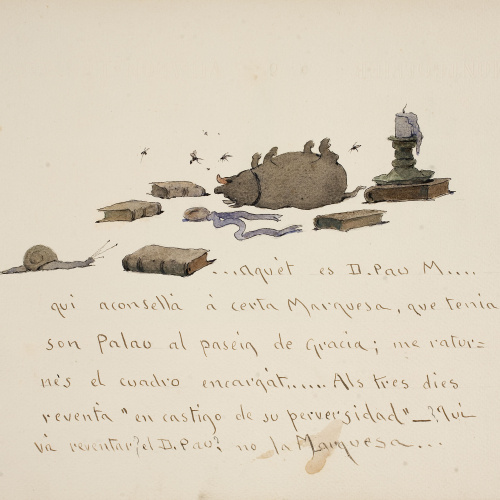 ...aquèt es D. Pau M....
qui aconsellá à certa Marquesa, que tenia
son Palau al paseig de Gracia; me ratur=
nés el cuadro encargat..... Als tres dies
reventa "en castigo de su perversidad"_¿Qui
và reventar? el D. Pau? no la Marquesa...